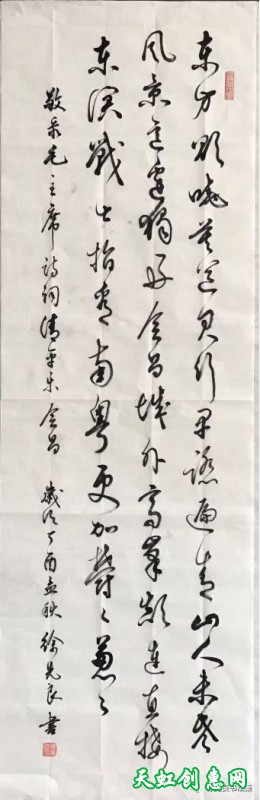 东方欲晓莫道君行早踏遍青山人未老
风景这边独好会昌城外高峰颠连直接
东溟戰士指看南粤更加欝々葱々
敬录毛主席诗词清平乐会昌 歲次丁酉孟秋 徐先良書
天虹创惠网